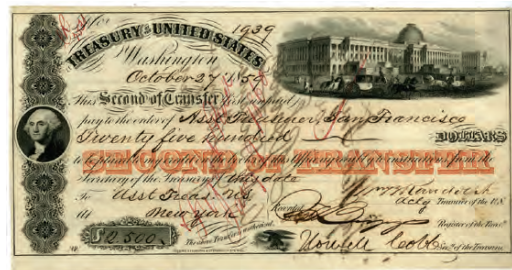 1939
TREASURY OF THE UNITED STATES
Washington
October 27 185
This Second of Transfer (first unpaid)
pay to the order of Asst Treasurer, San Francisco
Twenty five hundred DOLLARS
SECOND OF TRANSFER
to be placed to my credit on the books of his office agreeably to instructions from the
Secretary of the Treasury of this date
To Asst Treas U.S.
At New York
Actg Treasurer of the U.S.
Recorded
Register of the Treasy
$2,500
The above Transfer is authorized.
Howell Cobb Secy of the Treasury